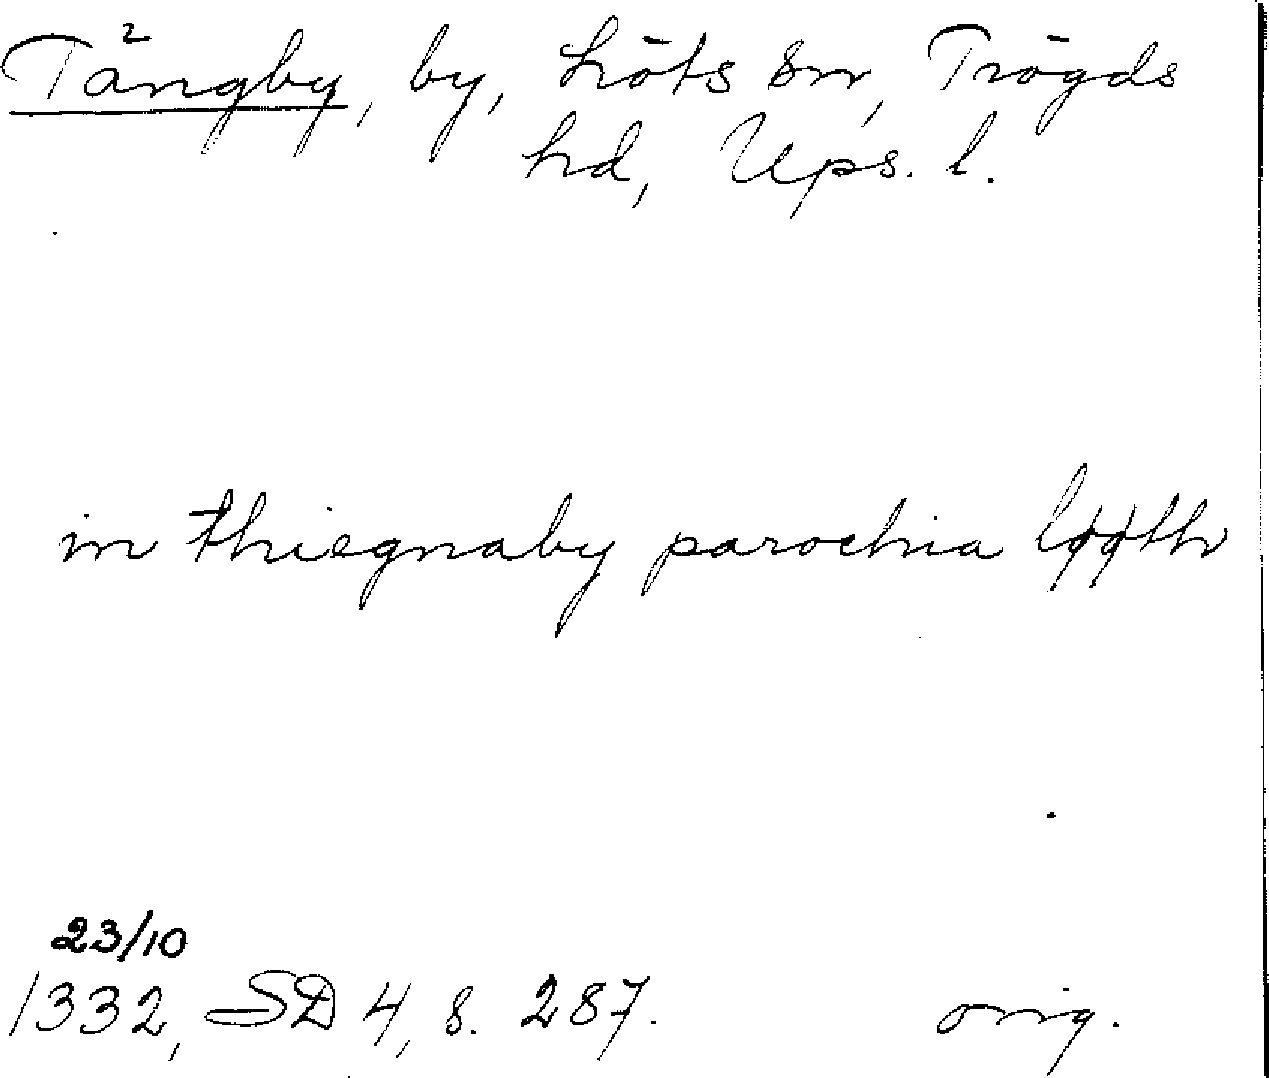 Tängby, by, Löts sn, Trögds
hd, Ups. l.
in thiegnaby parochia løøth
23/10
1332, SD 4, s. 287. orig.